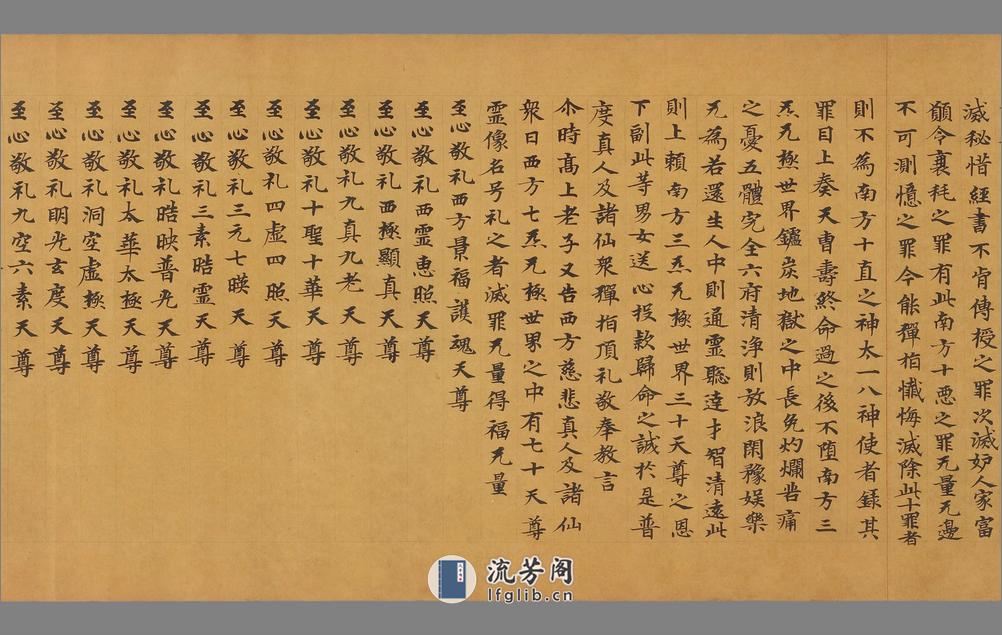 滅秘惜經書不肯傳授之罪次滅妒人家富
顚令襄耗之罪有此南方十𢙣之罪无量无邊
不可測憶之罪今能彈指懺悔滅除此十罪者
則不為南方十直之神太一八神使者録其
罪目上奏天曺壽終命過之後不堕南方三
炁无極世界鑪炭地獄之中長免灼爛苦痛
之憂五體完全六府清浄則放浪閑豫娱樂
无為若還生人中則通靈聡達才智清遠此
則上頼南方三炁无極世界三十天尊之恩
下副此等男女送心投款歸命之誠於是普
度真人及諸仙衆彈指頂礼敬奉教言
尒時髙上老子又告西方慈悲真人及諸仙
衆曰西方七炁无極世界之中有七十天尊
靈像名号礼之者滅罪无量得福无量
至心敬礼西方景福護魂天尊
至心敬礼西靈恵照天尊
至心敬礼西極顯真天尊
至心敬礼九真九老天尊
至心敬礼十聖十華天尊
至心敬礼四虚四照天尊
至心敬礼三元七暎天尊
至心敬礼三素晧靈天尊
至心敬礼晧映普光天尊
至心敬礼太華太極天尊
至心敬礼洞空虚極天尊
至心敬礼明光玄度天尊
至心敬礼九空六素天尊
流芳阁
lfglib.cn